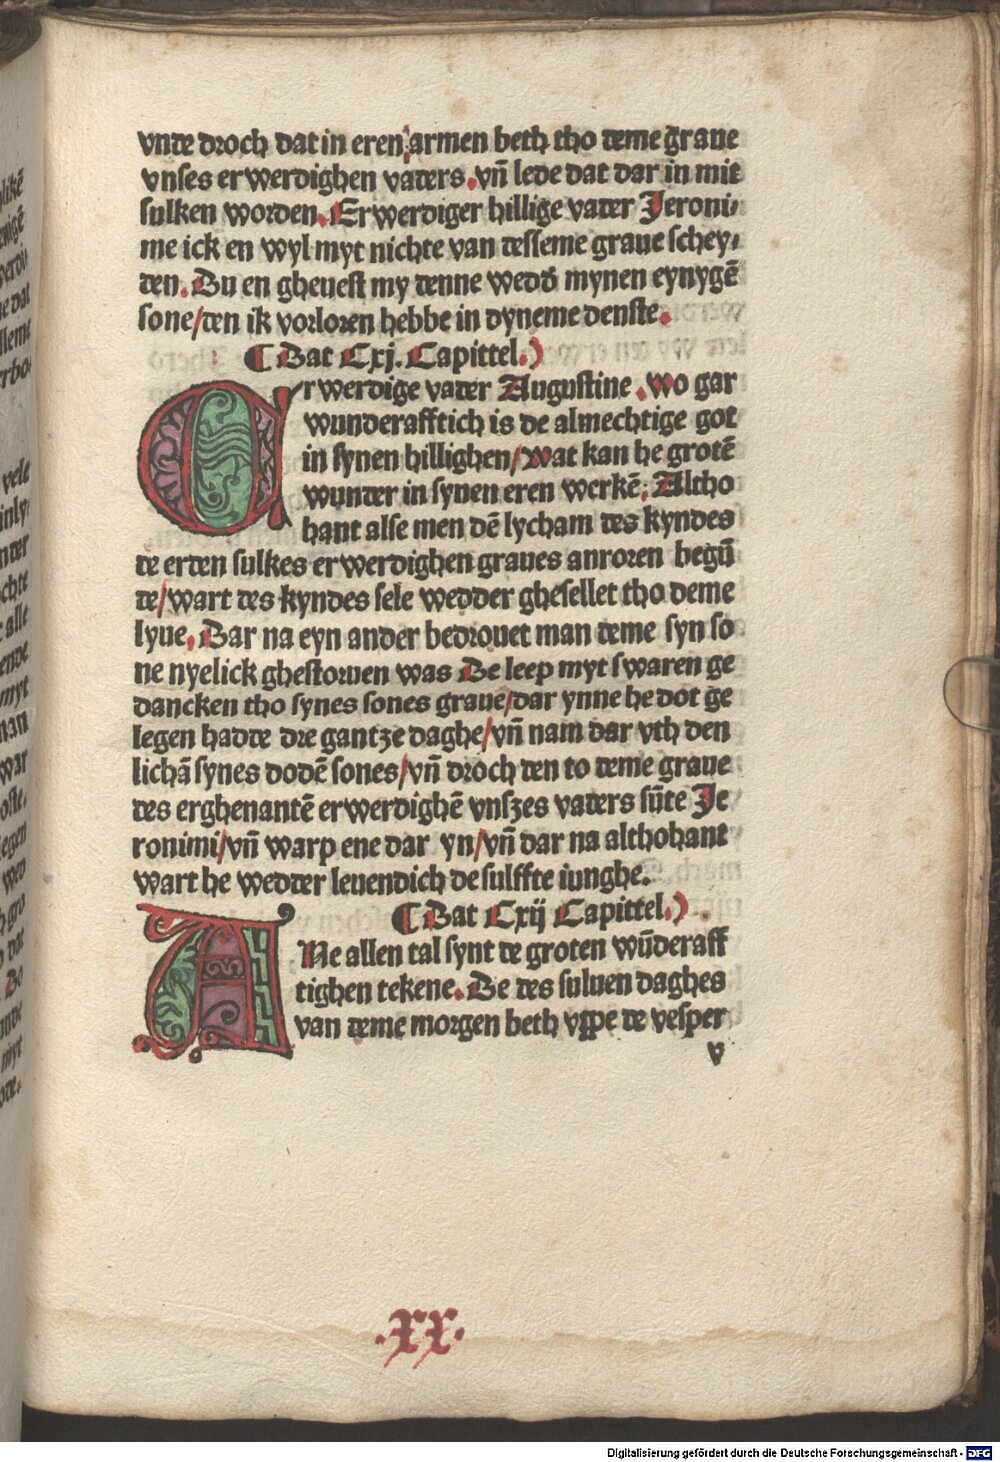 vnde droch dat in eren armen beth tho deme graue
vnses erwerdighen vaders. vn̄ lede dat dar in mit
sulken worden. Erwerdiger hillige vader Jeroni/
me ick en wyl myt nichte van desseme graue schey/
den. Du en gheuest my denne wedd' mynen eynygē
sone/den ik vorloren hebbe in dyneme denste.
¶ Dat Cxj. Capittel.)
ERwerdige vader Augustine. wo gar
wunderafftich is de almechtige got
in synen hillighen/wat kan he grotē
wunder in synen eren werkē. Altho
hant alse men dē lycham des kyndes
de erden sulkes erwerdighen graues anroren begū
de/wart des kyndes sele wedder ghesellet tho deme
lyue. Dar na eyn ander bedrouet man deme syn so
ne nyelick ghestoruen was De leep myt swaren ge
dancken tho synes sones graue/dar ynne he dot ge
legen hadde dre gantze daghe/vn̄ nam dar vth den
lichā synes dodē sones/vn̄ droch den to deme graue
des erghenantē erwerdighē vnszes vaders sūte Je
ronimi/vn̄ warp ene dar yn/vn̄ dar na althohant
wart he wedder leuendich de sulffte iunghe.
¶ Dat Cxij Capittel.)
ANe allen tal synt de groten wūderaff
tighen tekene. De des suluen daghes
van deme morgen beth vppe de vesper
v
.XX.
likē
vele
nder
chte
alle
ende
myt
man
war
oste.
egen
wed
gro
dat
Do
myt
Digitalisierung gefördert durch die Deutsche Forschungsgemeinschaft - DFG